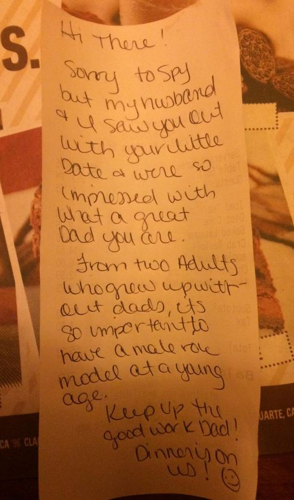 S.
Hi There!
Sorry to spy
but my husband
& I saw you out
with your little
Date & were so
impressed with
what a great
Dad you are.
From two Adults
who grew up with-
out dads, its
so important to
have a male role
model at a young
age.
Keep up the
good work Dad!
Dinner is on
us! ☺
UARTE, CA
CA
CLA